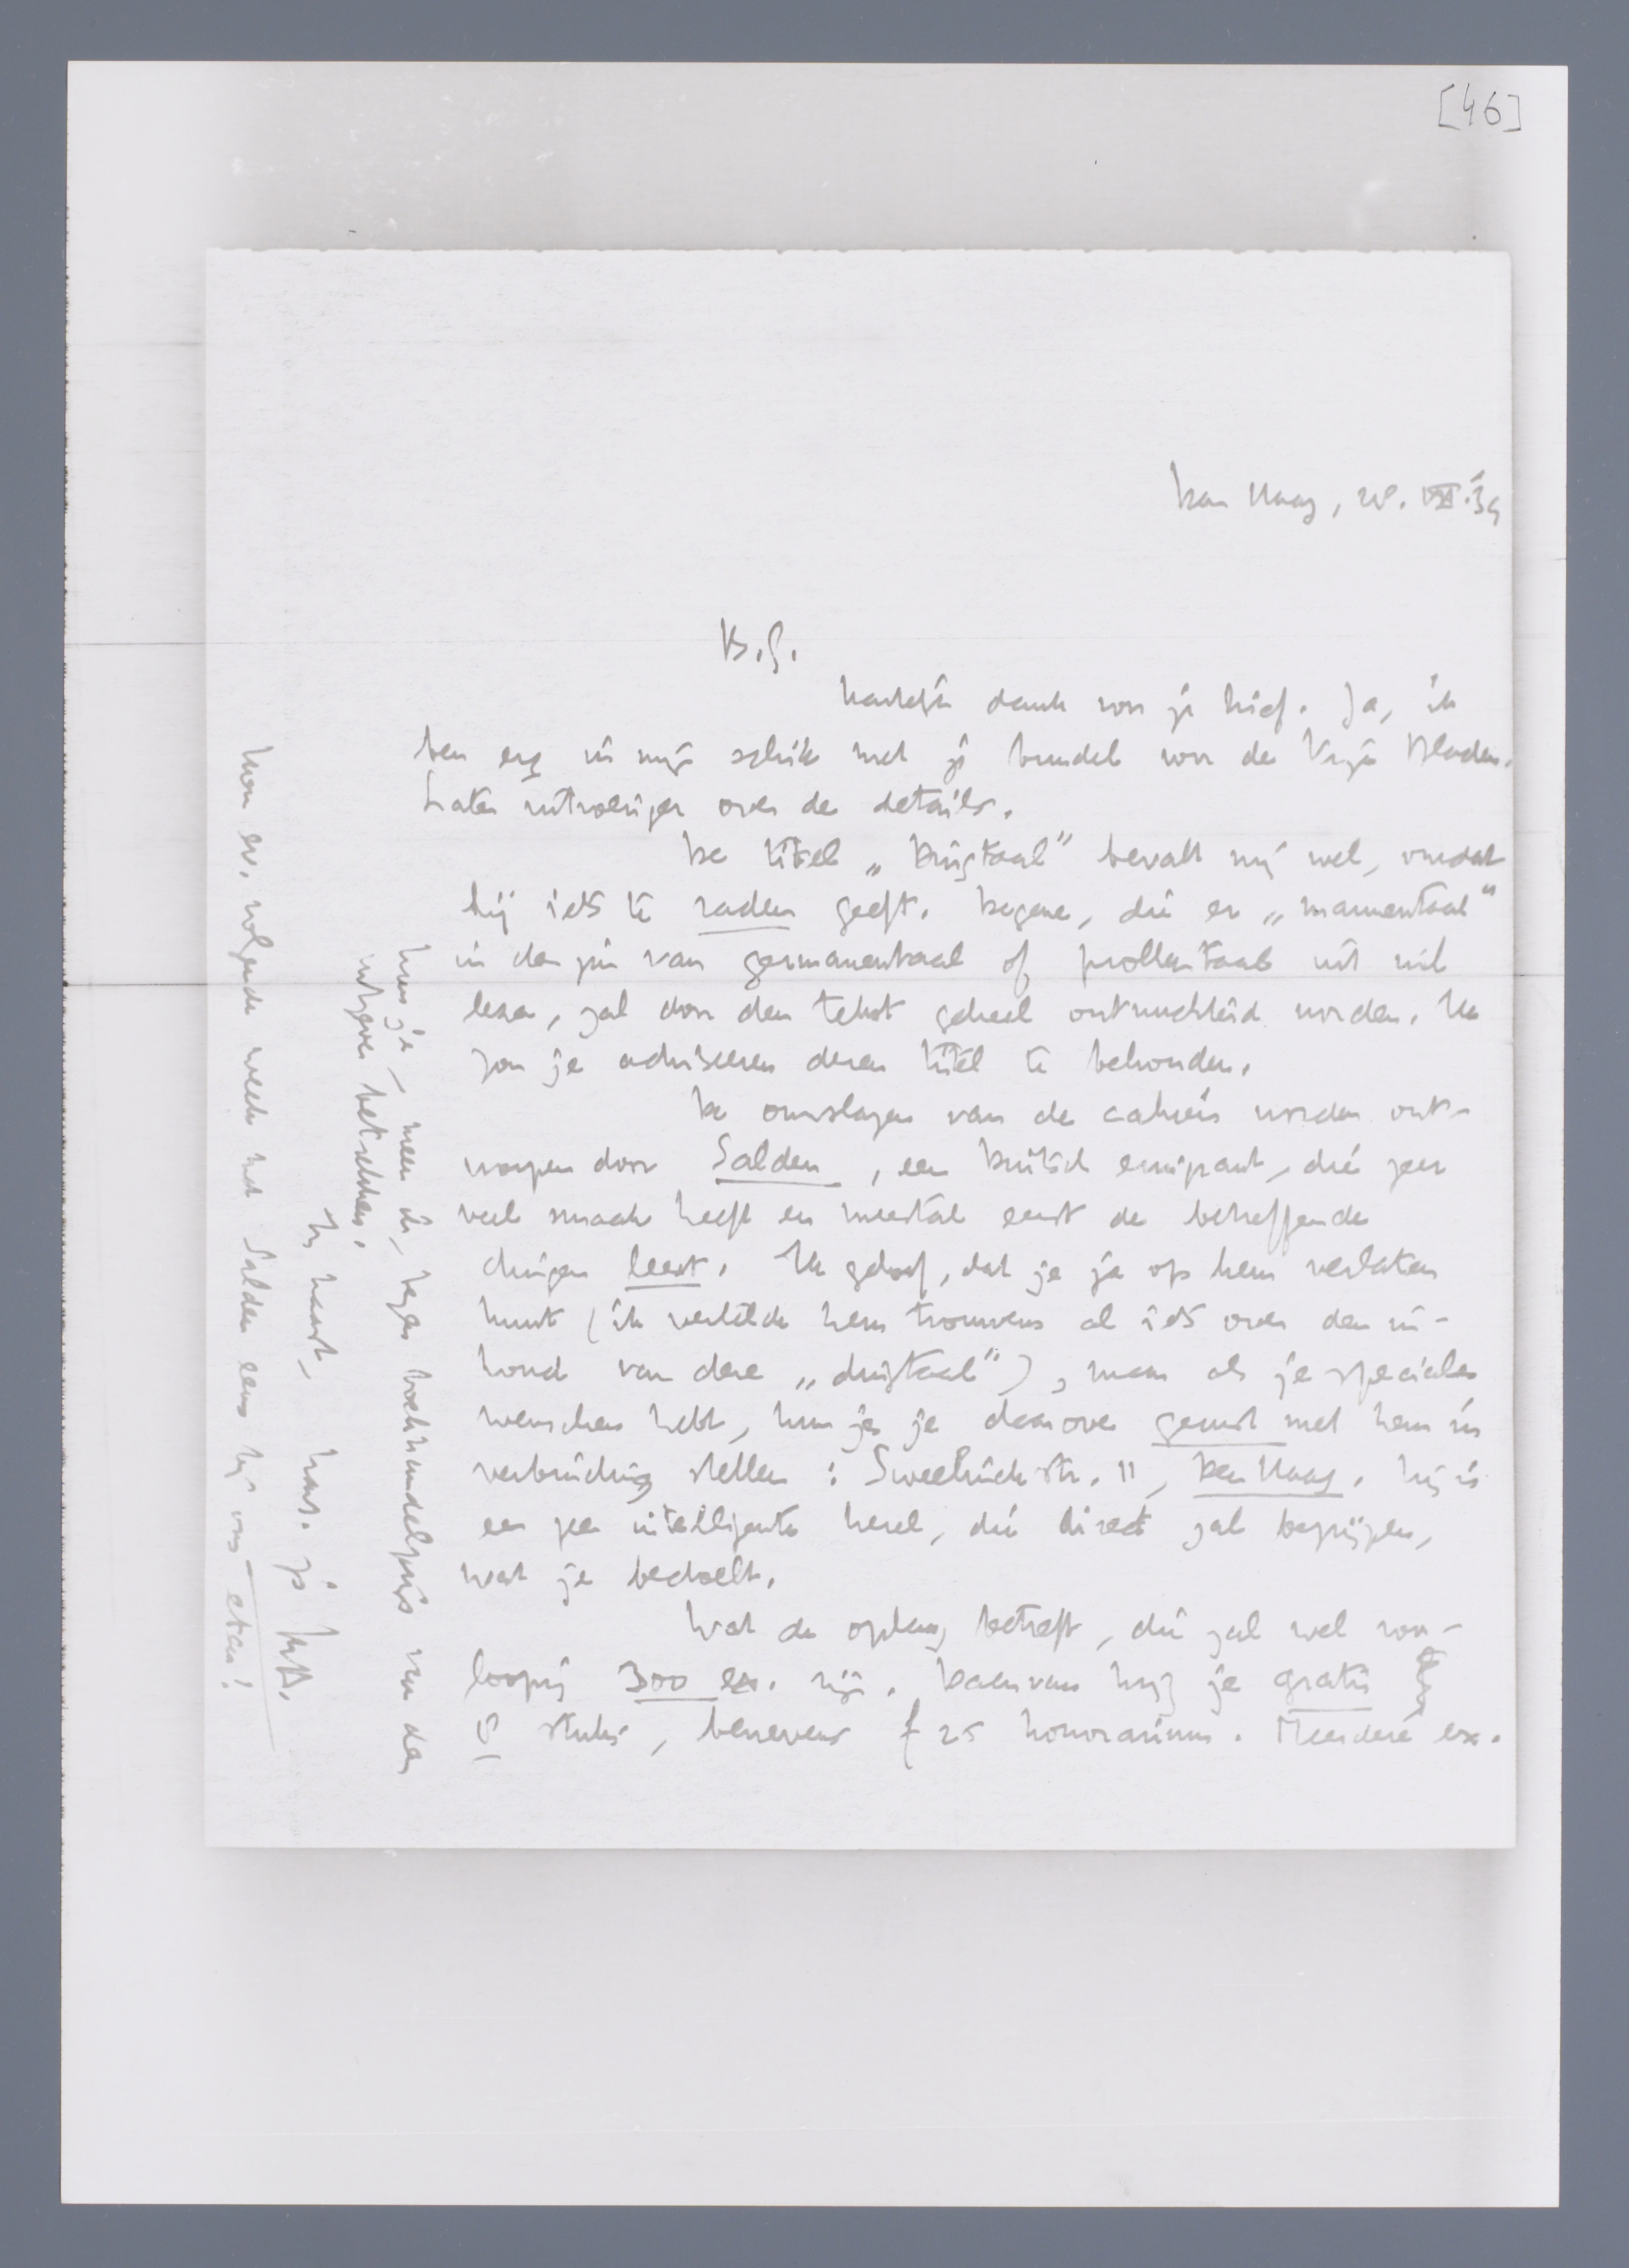 [46]
Den Haag, 28. VII.'39
B.G.
Hartelijk dank voor je brief. Ja, ik
ben erg in mijn schik met je bundel voor de Vrije Bladen.
Later uitvoeriger over de details.
De titel „Duistaal" bevalt mij wel, omdat
hij iets te raden geeft. Degene, die er „mamentaal"
in den zin van germanentaal of prollentaal uit wil
lezen, zal door den tekst geheel ontnuchterd worden. Ik
zou je adviseeren dezen titel te behouden.
De omslagen van de cahiers worden ont-
worpen door Salden, een Duitsch emigrant, die zeer
veel smaak heeft en meestal eerst de betreffende
dingen leest. Ik geloof, dat je je op hem verlaten
kunt (ik vertelde hem trouwens al iets over den in-
houd van deze „duistaal"), maar als je speciale
wenschen hebt, kun je je daarover gerust met hem in
verbinding stellen: Sweelinckstr. 11, Den Haag. Hij is
een zeer intelligente kerel, die direct zal begrijpen,
wat je bedoelt.
Wat de oplaag betreft, die zal wel voor-
loopig 300 ex. zijn. Daarvan krijg je gratis
6 stuks, benevens f 25 honorarium. Meerdere ex.
kun je, meen ik, tegen boekhandelprijs van den
uitgever betrekken.
In haast, hart. gr.
Kom ev. volgende week met Salden eens bij ons eten!